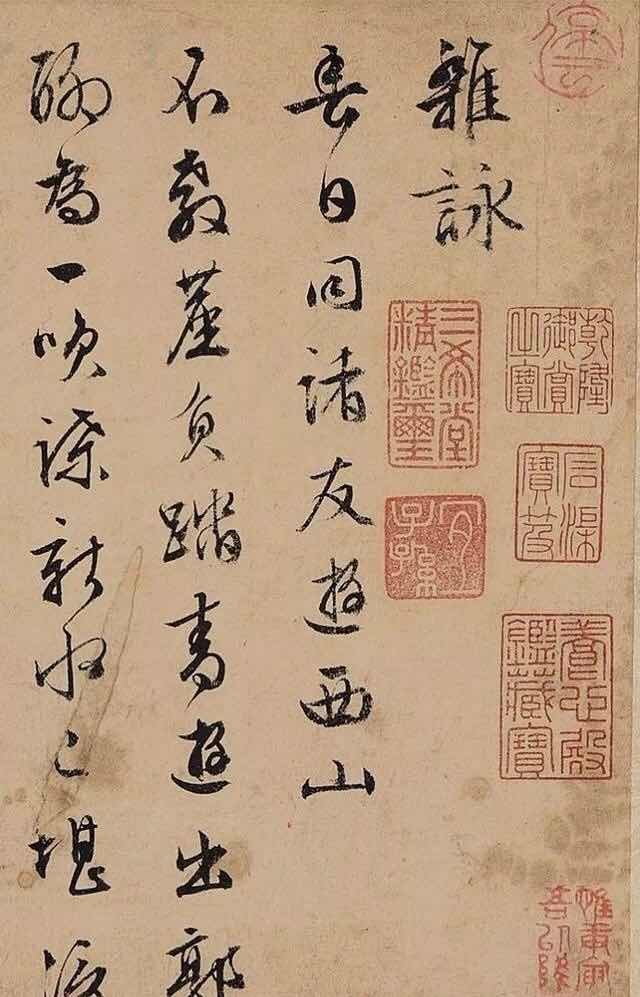 停雲
乾隆
御賞
之寶
石渠
寶笈
養心殿
鑑藏寶
惟庚寅
吾以降
雜詠
三希堂
精鑑璽
宜
子孫
春日同諸友遊西山
不教塵負踏青遊出郭
為一新水之堪